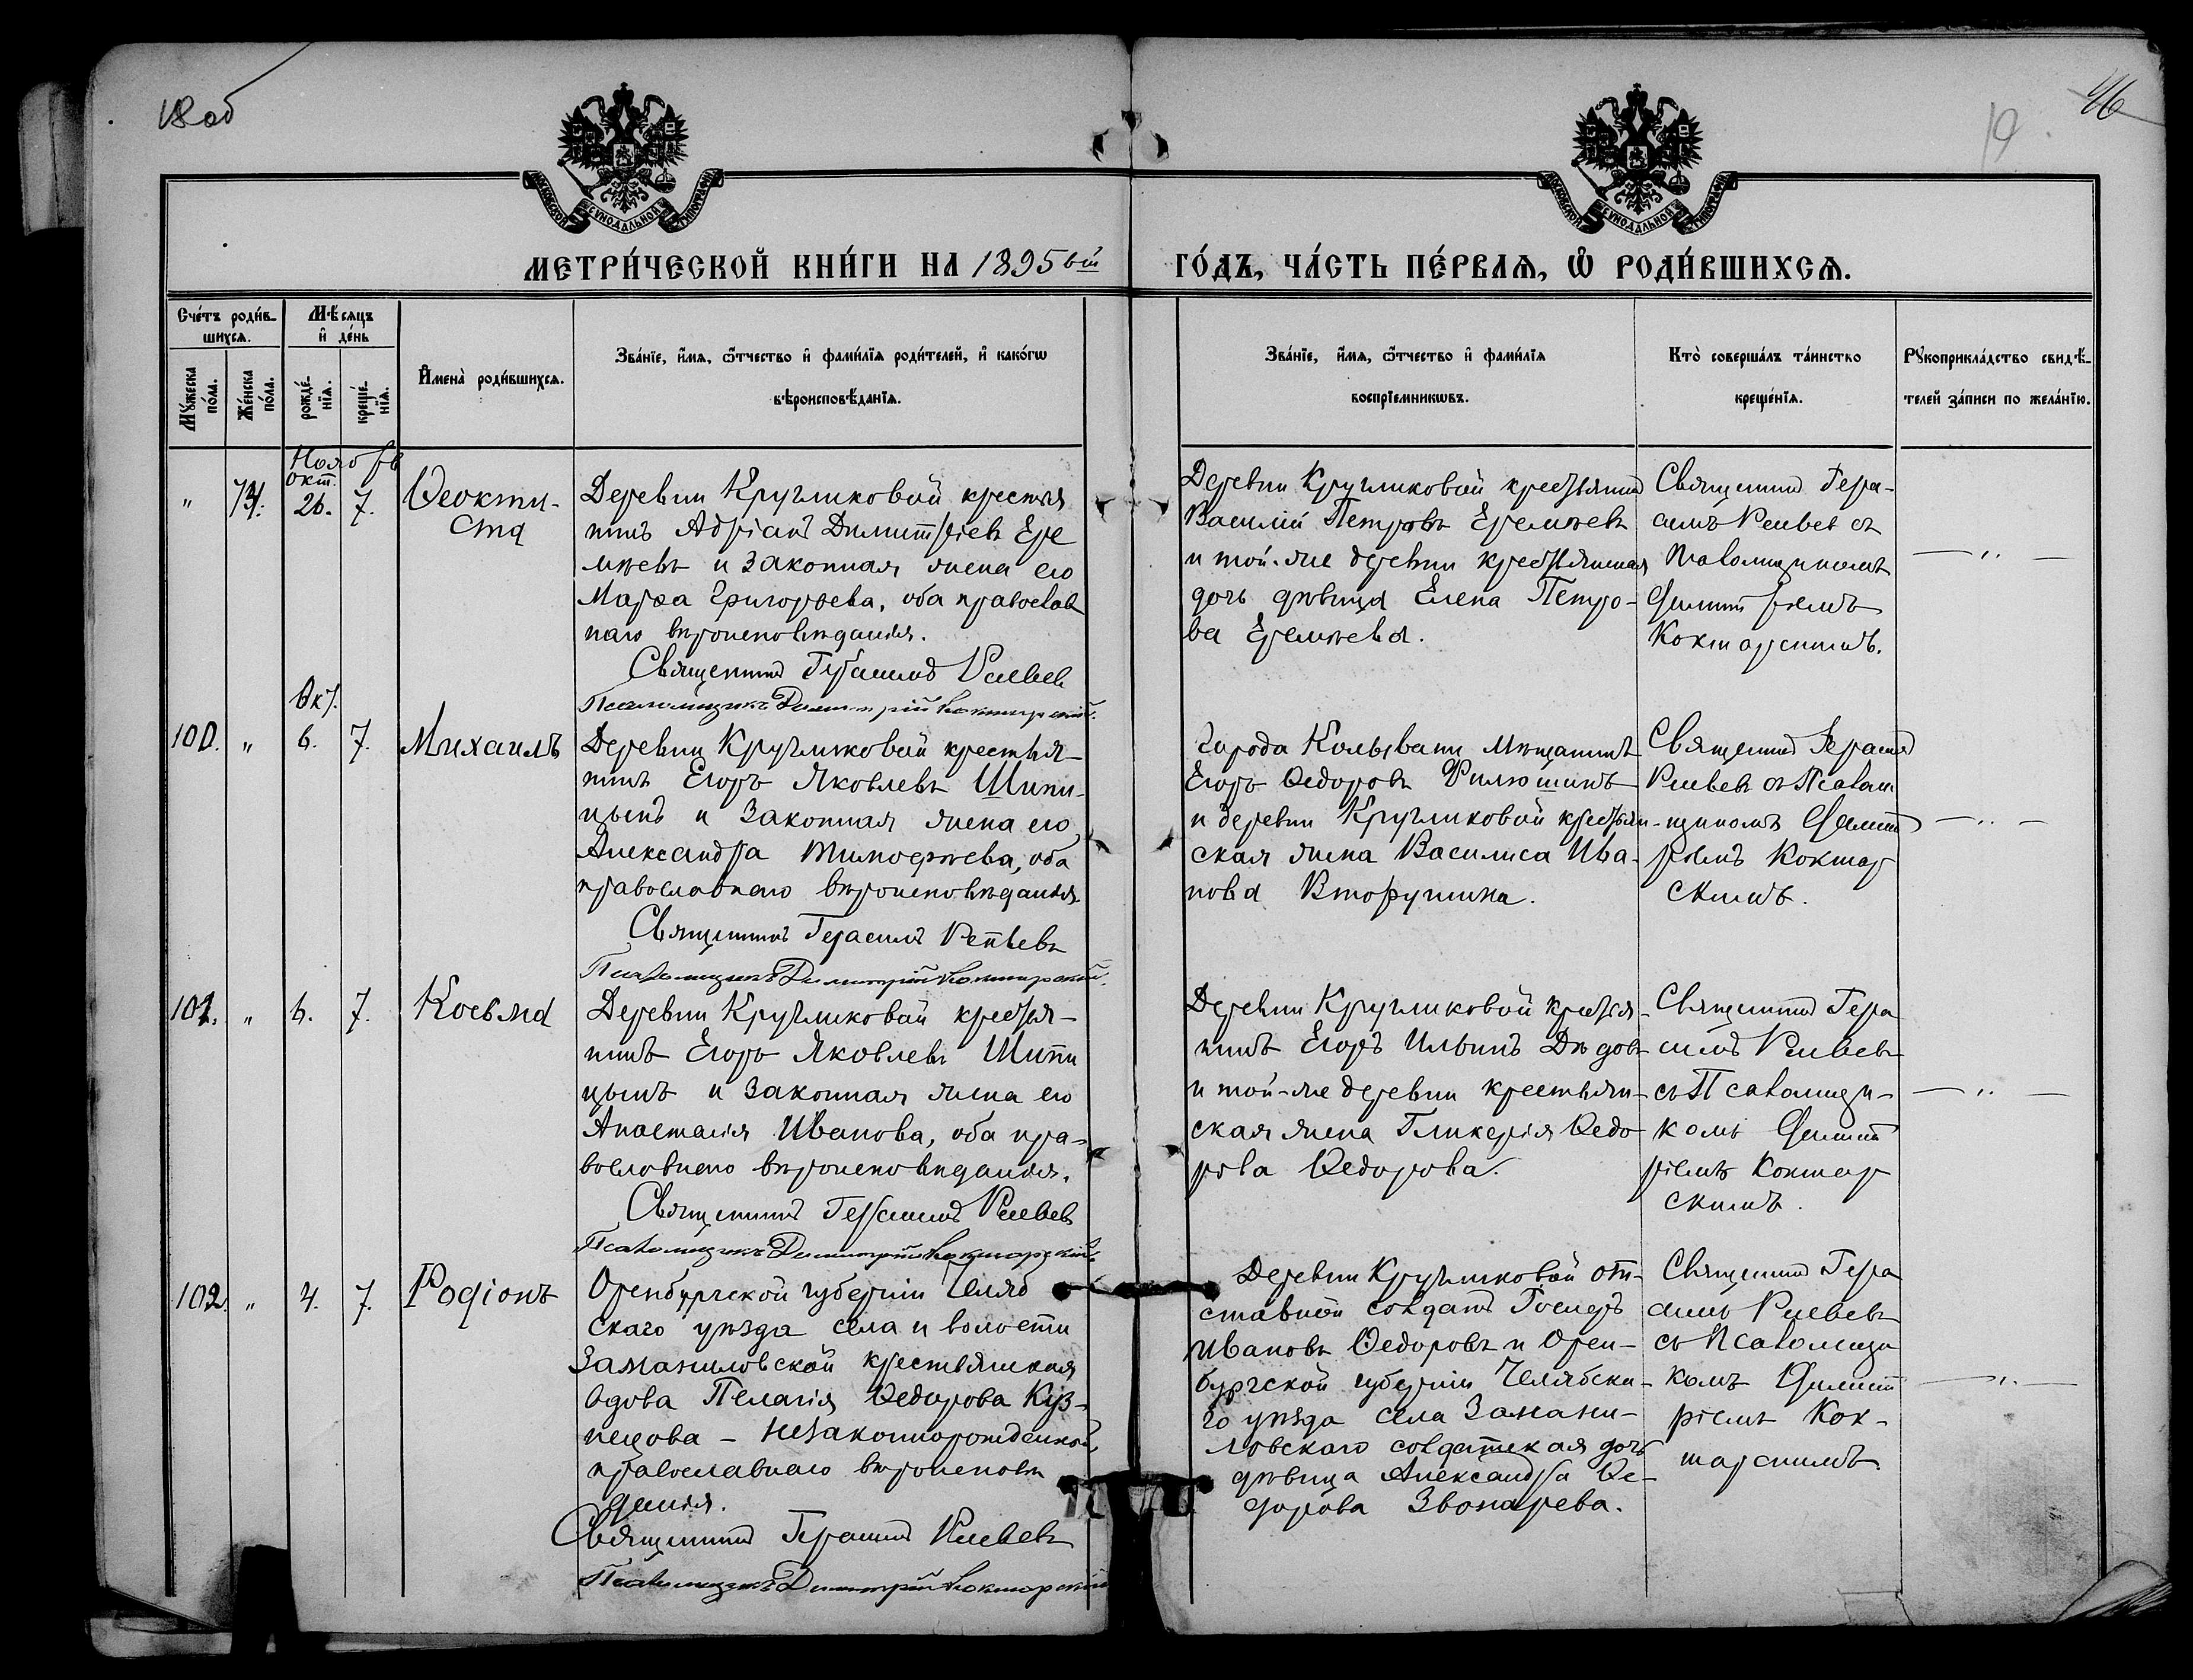 18 об
46
19.
МОСКОВСКОЙ СѴНОДАЛЬНОЙ ТИПОГРАФІИ
МОСКОВСКОЙ СѴНОДАЛЬНОЙ ТИПОГРАФІИ
МЕТРИ́ЧЕСКОЙ КНИ́ГИ НА 1895 ый ГО́ДЪ, ЧА́СТЬ ПЕ́РВАѦ, Ѡ҆ РОДИ́ВШИХСѦ.
Сче́тъ роди́в-
шихсѧ.
Мꙋ́жеска по́ла.
Же́нска по́ла.
Мѣ́сѧцъ
и҆ де́нь
рожде́-
нїѧ.
креще́-
нїѧ.
И҆мена̀ роди́вшихсѧ.
Зва́нїе, и҆́мѧ, ѻ҆́тчество и҆ фами́лїѧ роди́телей, и҆ како́гѡ
вѣроисповѣ́данїѧ.
Зва́нїе, и҆́мѧ, ѻ҆́тчество и҆ фами́лїѧ
воспрїе́мникѡвъ.
Кто̀ соверша́лъ та́инство
креще́нїѧ.
Рꙋкоприкла́дство свидѣ́-
телей за́писи по жела́нїю.
Ноябрь
Окт.
" 74. 26. 7. Ѳеокти-
ста
Деревни Кругликовой крестья
нинъ Адріанъ Димитріевъ Ере
мѣевъ и законная жена его
Марѳа Григорьева, оба православ
наго вѣроисповѣданія.
Священникъ Герасимъ
Псаломщикъ Димитрій Кокшарскій.
Деревни Кругликовой крестьянинъ
Василій Петровъ Еремѣевъ
и той-же деревни крестьянская
дочь дѣвица Елена Петро-
ва Еремѣева.
Священникъ Гера-
симъ съ
псаломщикомъ
Димитріемъ
Кокшарскимъ.
— " —
Окт.
100. " 6. 7. Михаилъ
Деревни Кругликовой крестья-
нинъ Егоръ Яковлевъ Шипи-
цынъ и законная жена его
Александра Тимоѳеева, оба
православнаго вѣроисповѣданія.
Священникъ Герасимъ
Псаломщикъ Димитрій Кокшарскій.
Города Колывани мѣщанинъ
Егоръ Ѳедоровъ Филюшинъ
и деревни Кругликовой крестьян-
ская жена Василиса Ива-
нова Вторушина.
Священникъ Герасимъ
съ Псалом
щикомъ Димит
ріемъ Кокшар
скимъ.
— " —
101. " 6. 7. Косьма
Деревни Кругликовой крестья-
нинъ Егоръ Яковлевъ Шипи
цынъ и законная жена его
Анастасія Иванова, оба пра-
вославнаго вѣроисповѣданія.
Священникъ Герасимъ
Псаломщикъ Димитрій Кокшарскій.
Деревни Кругликовой крестья-
нинъ Егоръ Ильинъ Дѣдовъ
и той-же деревни крестьян-
ская жена Гликерія Ѳедо
рова Ѳедорова.
Священникъ Гера
симъ
съ Псаломщи-
комъ Димит
ріемъ Кокшар
скимъ.
— " —
102. " 4. 7. Родіонъ
Оренбургской губерніи Челяб
скаго уѣзда села и волости
Заманиловской крестьянская
вдова Пелагія Ѳедорова Куз-
нецова — незаконнорожденной,
православнаго вѣроисповѣ
данія.
Священникъ Герасимъ
Псаломщикъ Димитрій Кокшарскій
Деревни Кругликовой от-
ставной солдатъ
Ивановъ Ѳедоровъ и Орен-
бургской губерніи Челябска-
го уѣзда села Замани-
ловскаго солдатская дочь
дѣвица Александра Ѳе-
дорова Звонарева.
Священникъ Гера
симъ
съ Псаломщи
комъ Димит
ріемъ Кок-
шарскимъ.
— " —